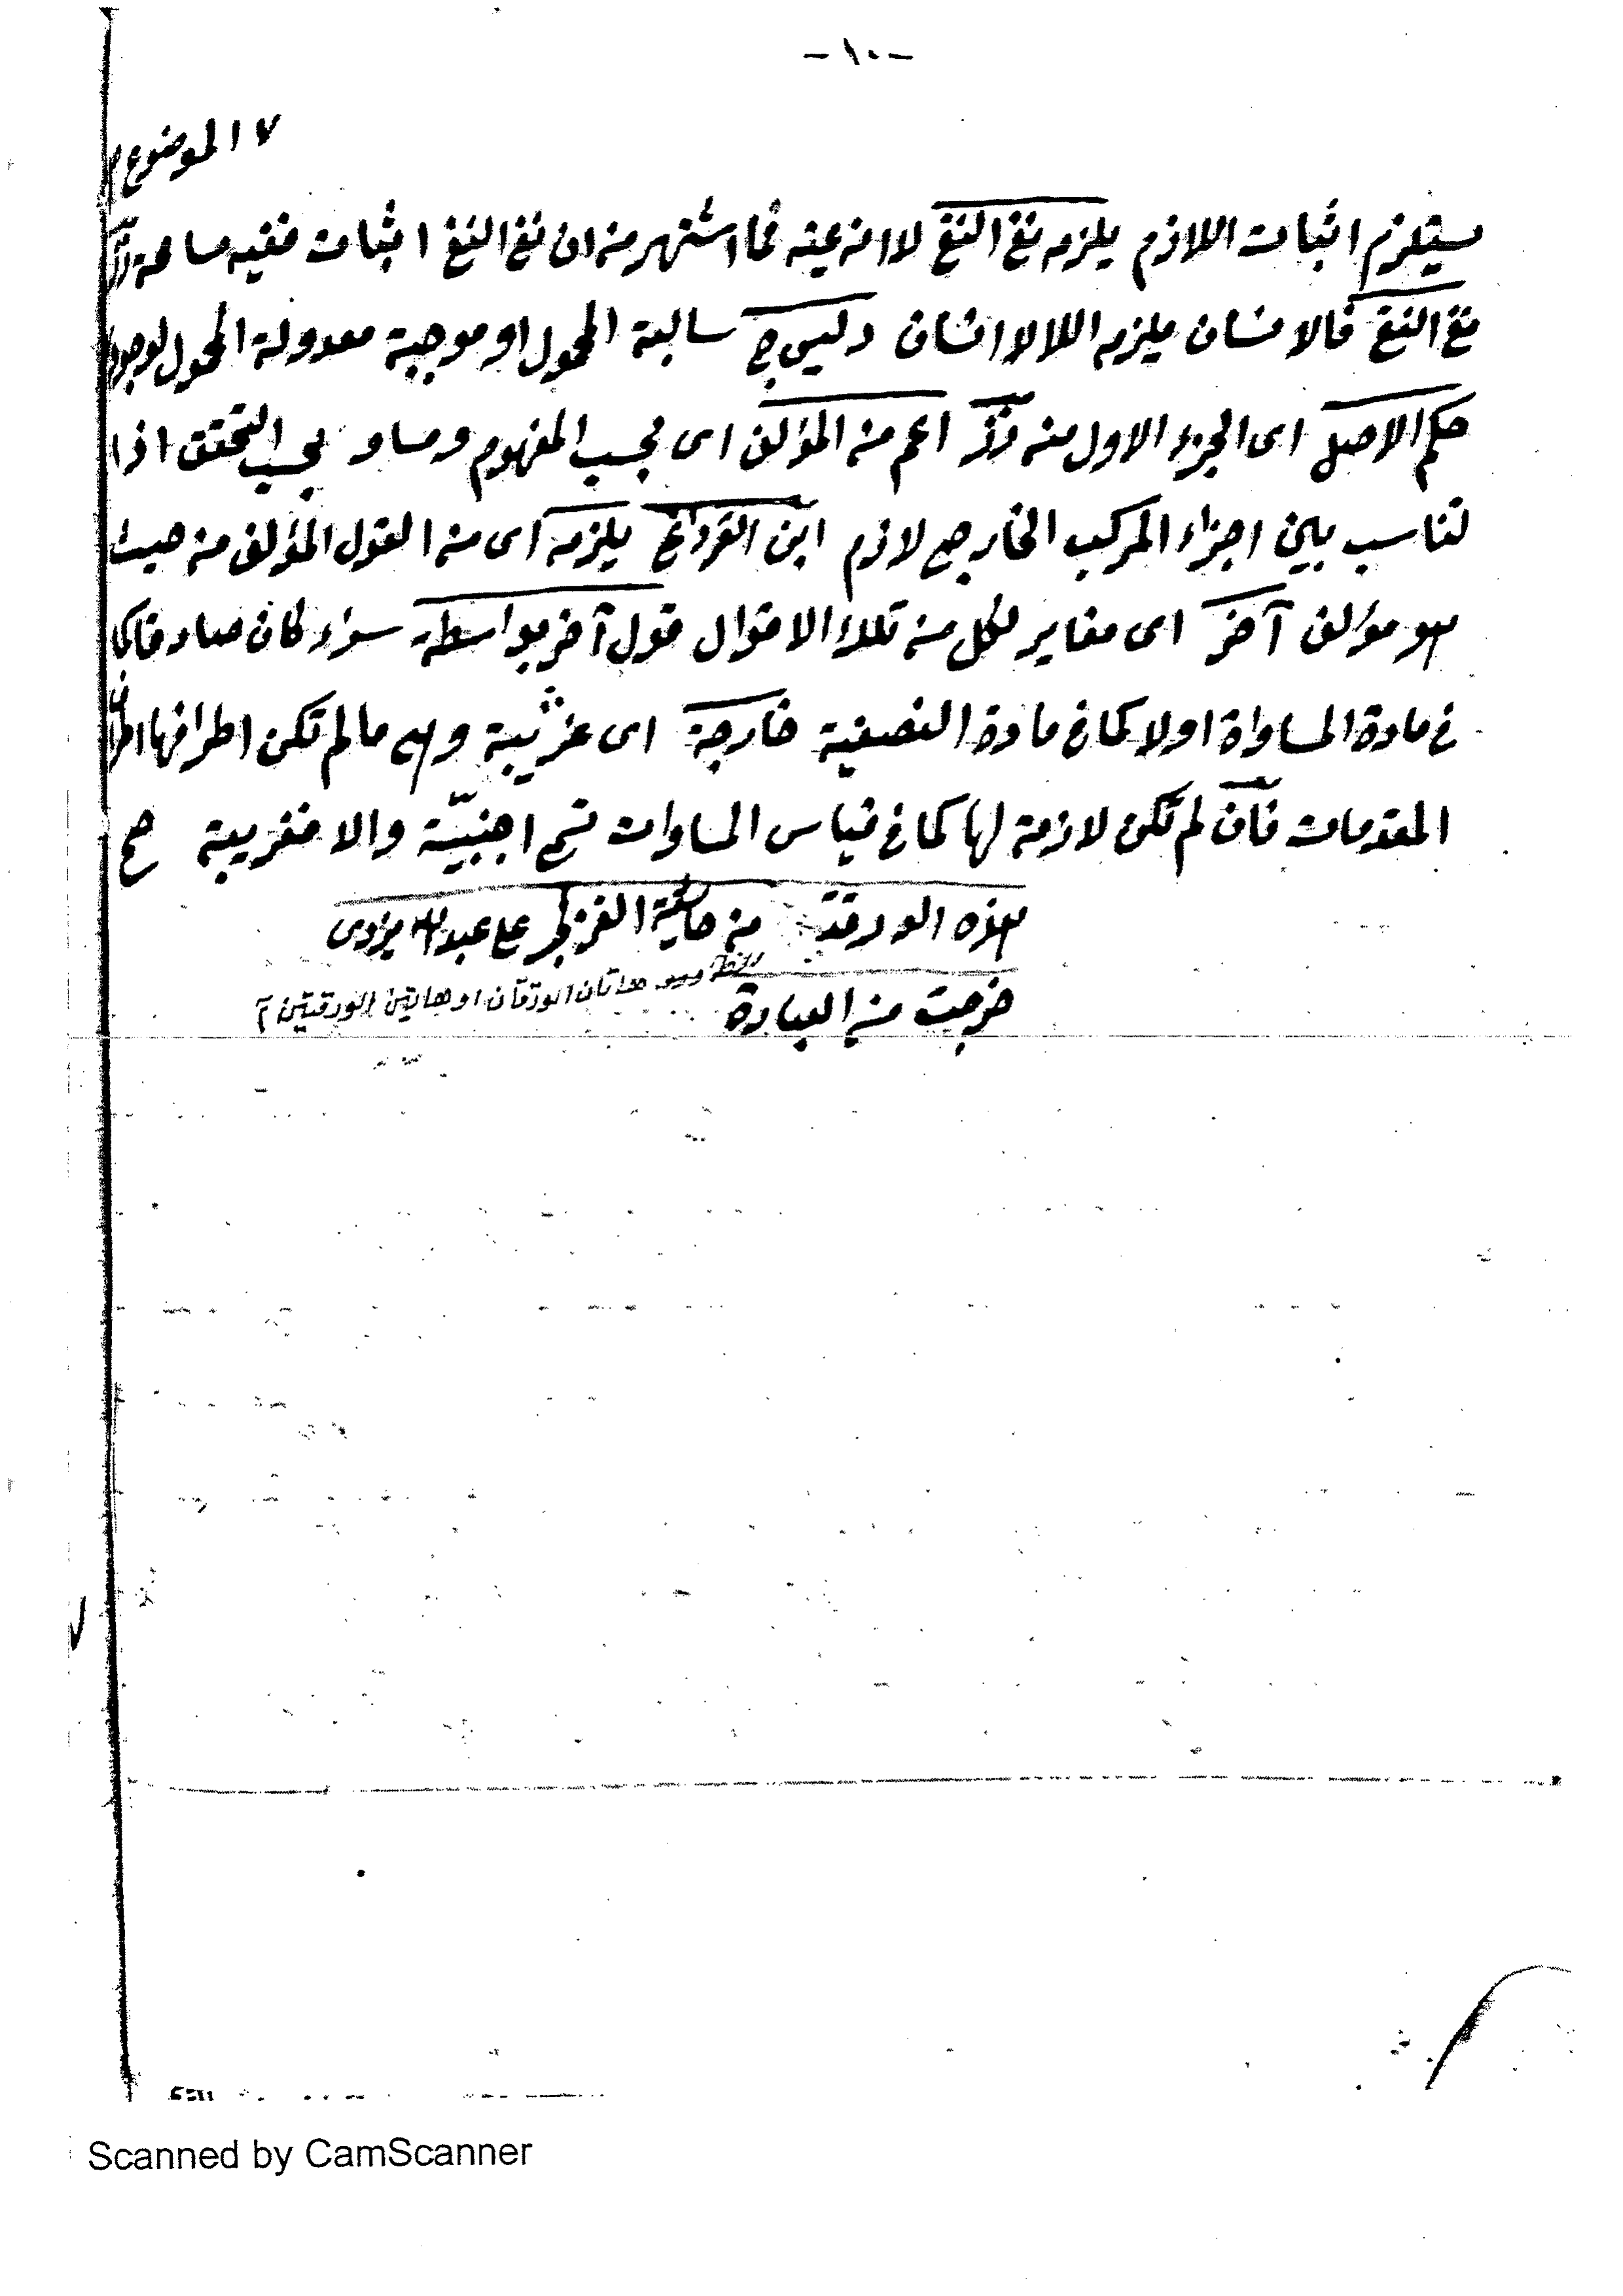 -١٠-
٧ الموضوع
يستلزم اثبات اللازم يلزمه نفي النفي لا انه عينه فما اشتهر من ان نفي النفي اثبات ففيه مسامحة
نفي النفي فالانسان يلزمه اللا لا انسان وليس ح سالبة المحمول او موجبة معدولة المحمول لوجود
حكم الاصل اى الجزء الاول منه اعم من المؤلف اى بحسب المفهوم ومساو بحسب التحقق اذا
لتناسب بين اجزاء المركب الخارجي لازم ابن القرداغي يلزمه اى من القول المؤلف من حيث
هو مؤلف آخر اى مغاير لكل من تلك الاقوال قول آخر بواسطة سواء كان صادقا كما
في مادة المساواة او لا كما في مادة النصفية خارجة اى غريبة وهي ما لم تكن اطرافها
المقدمات فان لم تكن لازمة لها كما في قياس المساوات تسم اجنبيّة والا فغريبة ح
هذه الورقة من حاشية القزلجي على عبدالله يزدى
هاتان الورقتان او هاتين الورقتين
خرجت من العبادة
Scanned by CamScanner